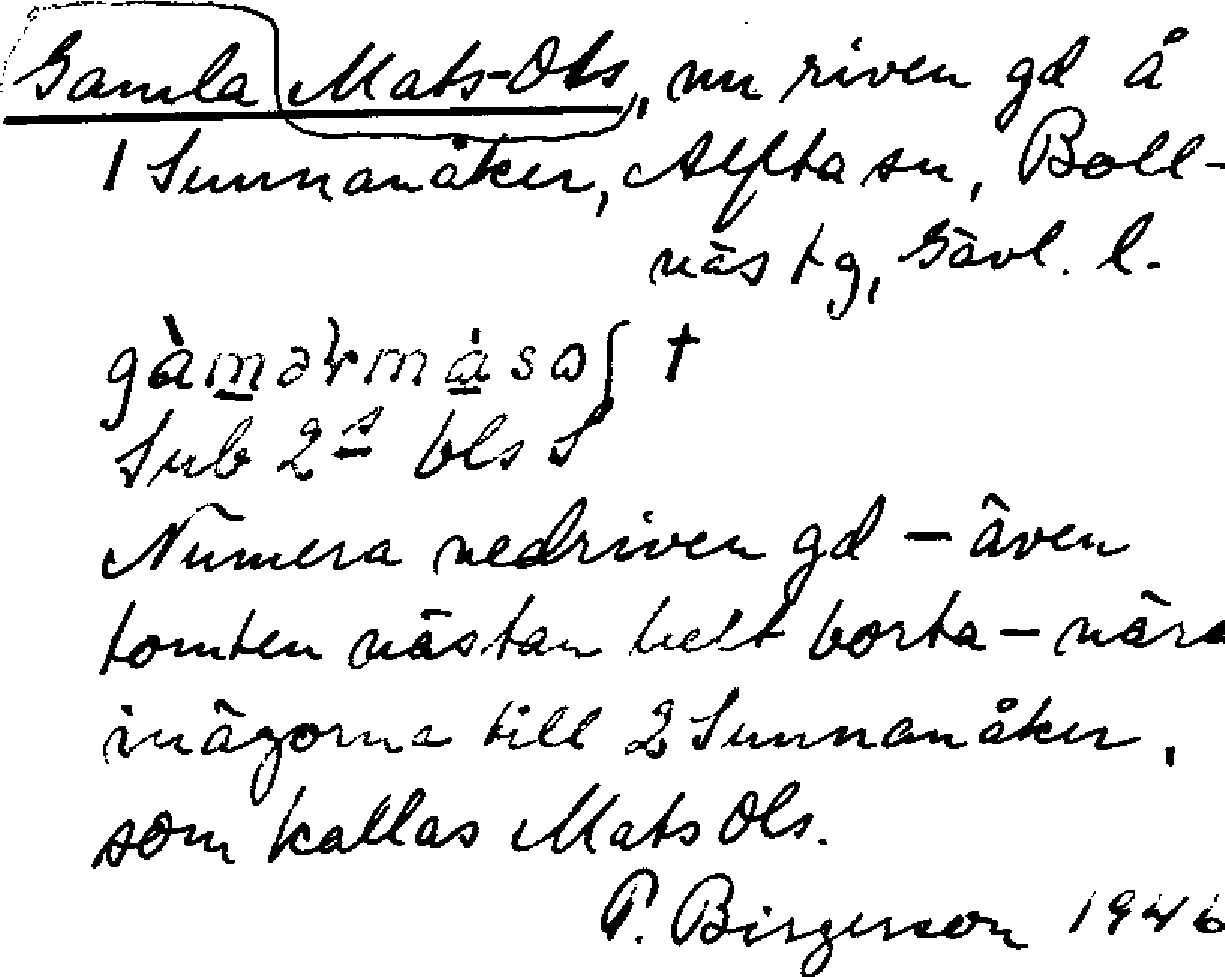 Gamla Mats-Ols, nu riven gd å
1 Sunnanåker, Alfta sn, Boll-
näs tg, Gävl. l.
†
Sub 2 = bls S
Numera nedriven gd – även
tomten nästan helt borta – nära
inägorna till 2 Sunnanåker,
som kallas Mats Ols.
P. Birgerson 1946